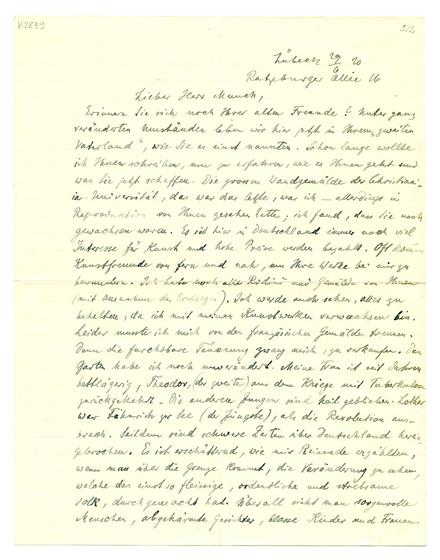 K2839
512
Lübeck 29/6 20
Ratzeburger Allee 16
Lieber Herr Munch,
Erinnern Sie sich noch Ihrer alten Freunde? Unter ganz
veränderten Umständen leben wir hier jetzt in Ihrem „zweiten
Vaterland", wie Sie es einst nannten. Schon lange wollte
ich Ihnen schreiben, um zu erfahren, wie es Ihnen geht und
was Sie jetzt schaffen. Die grossen Wandgemälde der Christiani-
ia-Universität, das war das letzte, was ich — allerdings in
Reproduction von Ihnen gesehen hatte; ich fand, dass Sie noch
gewachsen waren. Es ist hier in Deutschland immer noch viel
Interesse für Kunst und hohe Preise werden bezahlt. Oft kommen
Kunstfreunde von fern und nah, um Ihre Werke bei mir zu
bewundern. Ich habe noch alle Rodins und Gemälde von Ihnen
(mit Ausnahme der). Ich werde auch sehen, alles zu
behalten, da ich mit meinen Kunstwerken verwachsen bin.
Leider musste ich mich von den französischen Gemälden trennen.
Denn die furchtbare Teuerung zwang mich, zu verkaufen. Den
Garten habe ich noch unverändert. Meine Frau ist seit Jahren
bettlägerig, Theodor, (der zweite) aus dem Kriege mit Tuberkulose
zurückgekehrt. Die anderen Jungen sind heil geblieben. Lothar
war Fähnrich zur See (der Jüngste), als die Revolution aus-
brach. Seitdem sind schwere Zeiten über Deutschland herein-
gebrochen. Es ist erschütternd, wie mir Reisende erzählen,
wenn man über die Grenze kommt, die Veränderung zu sehen,
welche das einst so fleissige, ordentliche und strebsame
Volk, durchgemacht hat. Überall sieht man sorgenvolle
Menschen, abgehärmte Gesichter, blasse Kinder und Frauen.